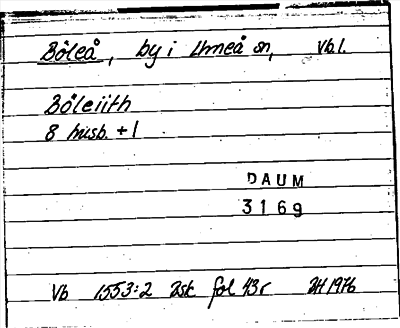 Böleå, by i Umeå sn, Vbl.
Böleiith
8 husb. + 1
DAUM
3169
Vb 1553:2 Isk fol 43r 1976